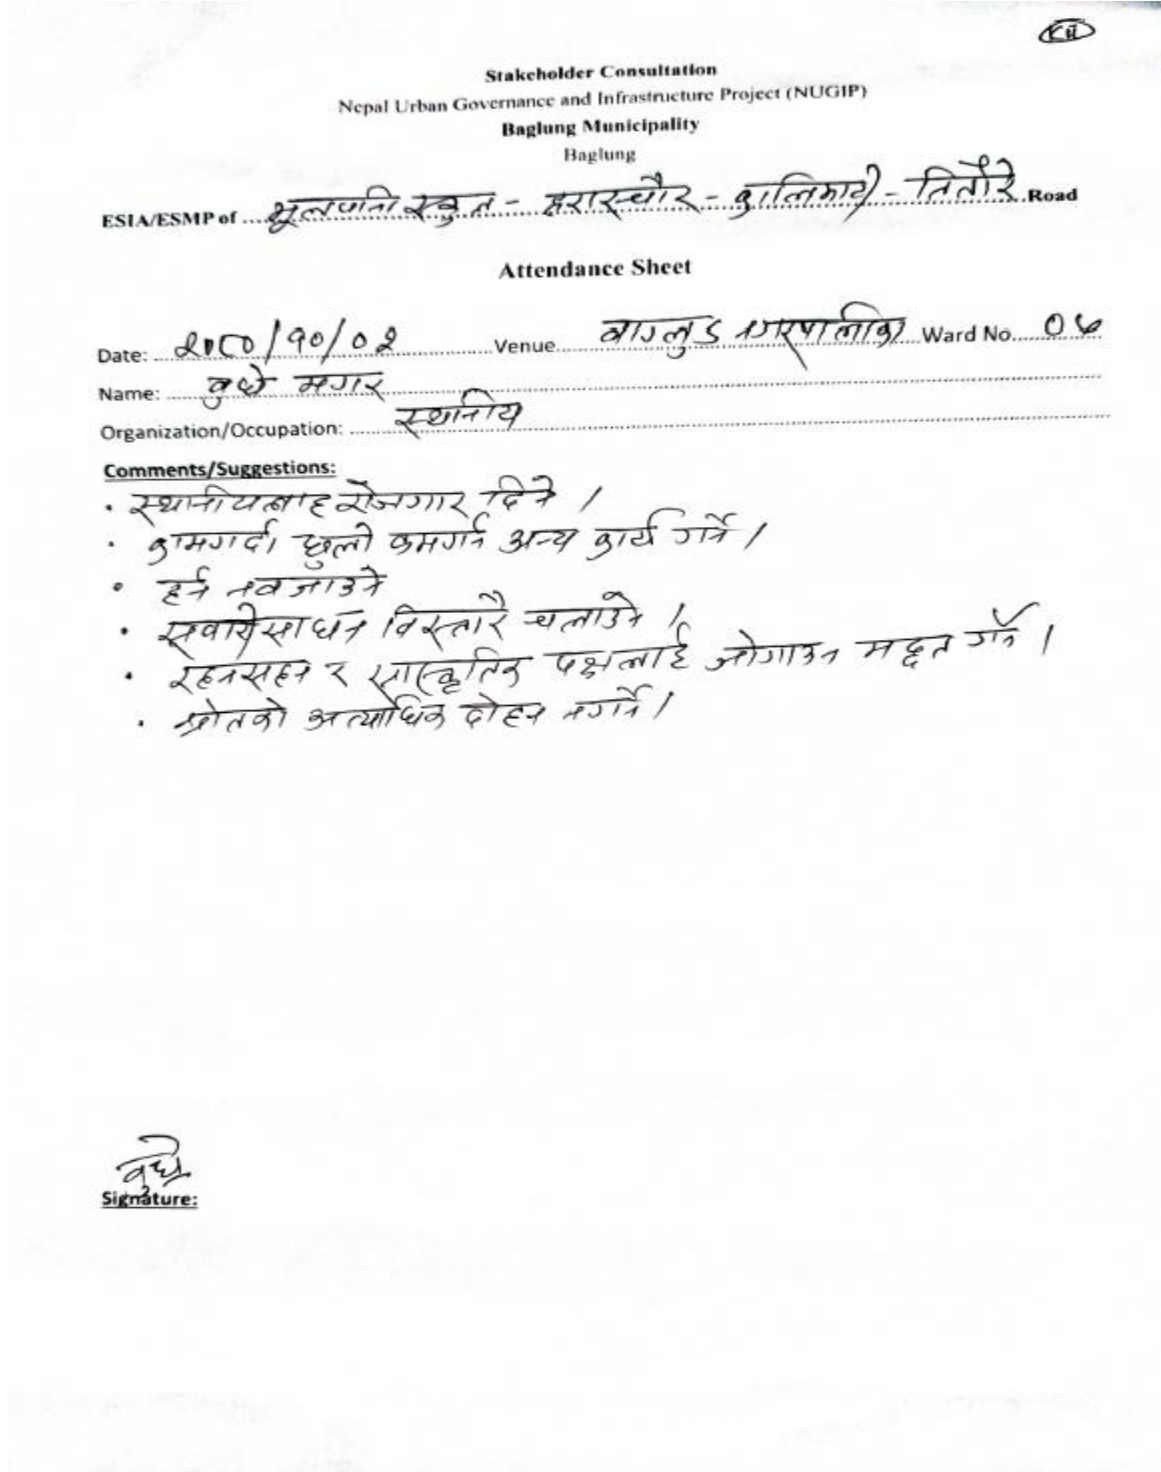 Kii
Stakeholder Consultation
Nepal Urban Governance and Infrastructure Project (NUGIP)
Baglung Municipality
Baglung
ESIA/ESMP of .... मूलपानी स्कुल - हरास्चौर - - तितौरे Road
Attendance Sheet
Date: २०८०/१०/०२ Venue बागलुङ नगरपालिका Ward No.
Name: बुधे मगर
Organization/Occupation: स्थानीय
Comments/Suggestions:
• स्थानीयलाइ रोजगार दिने ।
• कामगर्दा धुलो कमगर्न अन्य कार्य गर्ने ।
• हर्न नवजाउने
• सवारीसाधन विस्तारै चलाउने ।
• रहनसहन र सांस्कृतिक पक्षलाई जोगाउन मद्दत गर्ने ।
• स्रोतको अत्याधिक दोहन नगर्ने ।
बुधे
Signature: